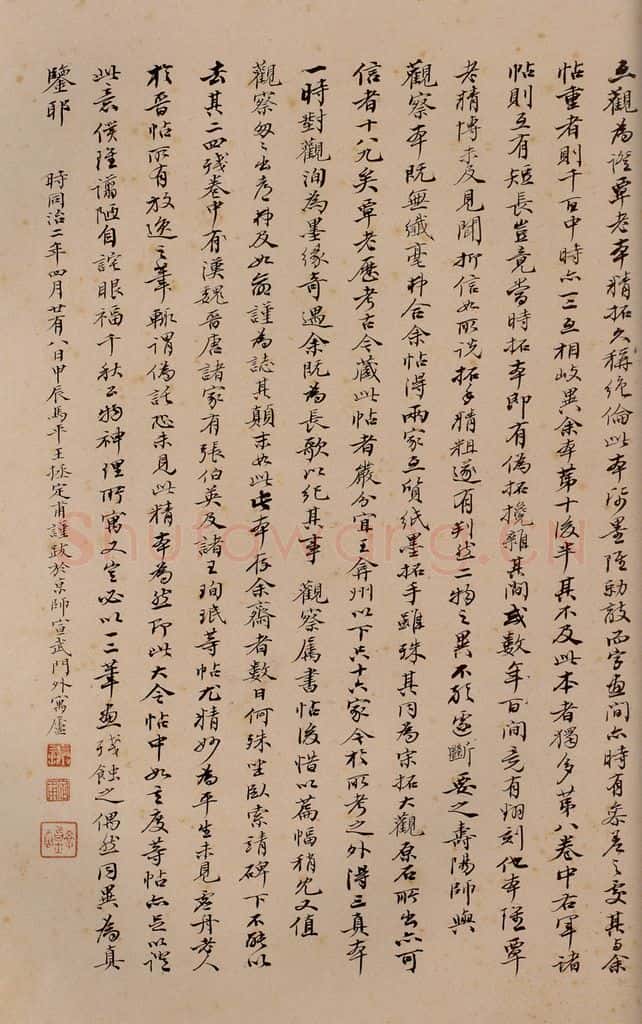 互觀為證覃老本精拓久稱絕倫此本濃墨隆勁故畫間亦時有參差之處其與余
帖重者則千百中時亦一二互相歧異余本第十後半其不及此本者獨多第八卷中右軍諸
帖則互有短長豈竟當時拓本即有偽拓攙雜其間或數年百間竟有翻刻他本隆覃
老精博未及見聞抑信如所說拓手精粗遂有判然二物之異不能遽斷要之壽陽師與
觀察本既無纖毫粉合余帖得兩家互質紙墨拓手雖殊其同為宗拓大觀原石所出亦可
信者十八九矣覃老歷考古今藏此帖者嚴分宜王弇州以下共十六家今於所考之外得三真本
一時對觀洵為墨緣奇遇余既為長歌以紀其事 觀察屬書帖後惜以篇幅稍尤又值
觀察匆匆出都 謹為誌其顛末如此此本存余齋者數日何殊坐臥索靖碑下不能以
去其二四殘卷中有漢魏晉唐諸家有張伯英及諸王珣珉等帖尤精妙為平生未見 老人
於晉帖所有放逸之筆輒謂偽託恐未見此精本為然即此大令帖中如 等帖亦足以證
此意僕隆謭陋自詫眼福千秋公物神理所寓又豈必以一二筆畫殘蝕之偶然同異為真
鑒耶
時同治二年四月廿有八日甲辰馬平王拯定甫謹跋於京師宣武門外寓廬
Shufawang.cn